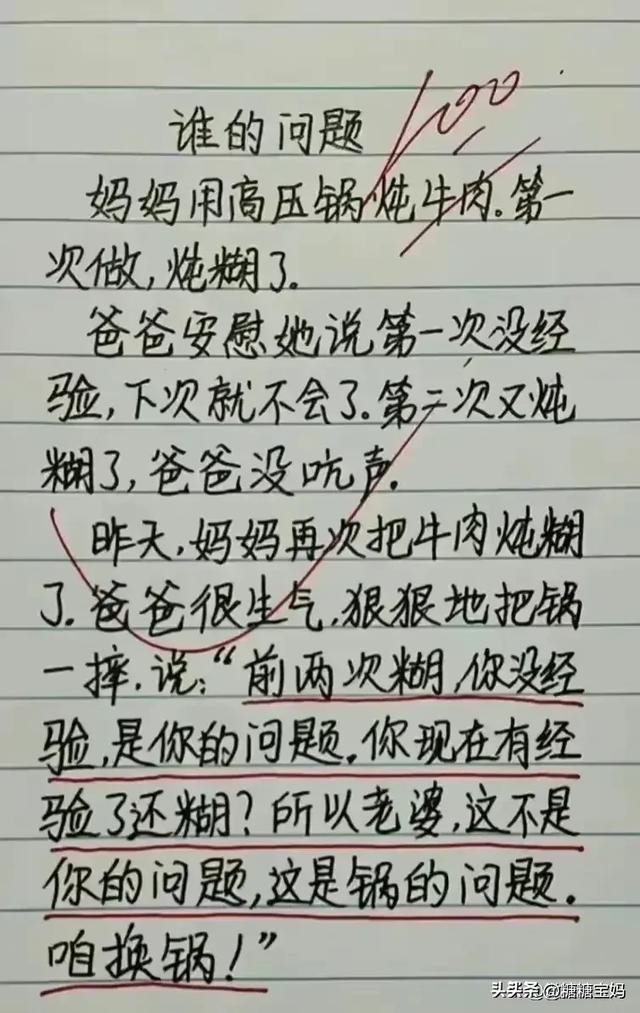 100
谁的问题
妈妈用高压锅炖牛肉。第一
次做，炖糊了。
爸爸安慰她说第一次没经
验，下次就不会了。第二次又炖
糊了，爸爸没吭声。
昨天，妈妈再次把牛肉炖糊
了。爸爸很生气，狠狠地把锅
一摔，说：“前两次糊，你没经
验，是你的问题。你现在有经
验了还糊？所以老婆，这不是
你的问题，这是锅的问题。
咱换锅！”
头条@糖糖宝妈